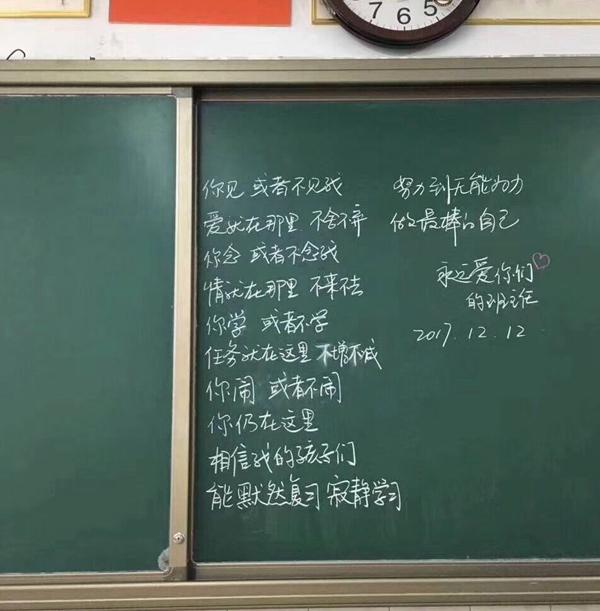 7 6 5
你见 或者不见我
爱就在那里 不舍不弃
你念 或者不念我
情就在那里 不来不去
你学 或者不学
任务就在这里 不增不减
你闹 或者不闹
你仍在这里
相信我的孩子们
能默然复习 寂静学习
努力到无能为力
做最棒的自己
永远爱你们
的班主任
2017.12.12.